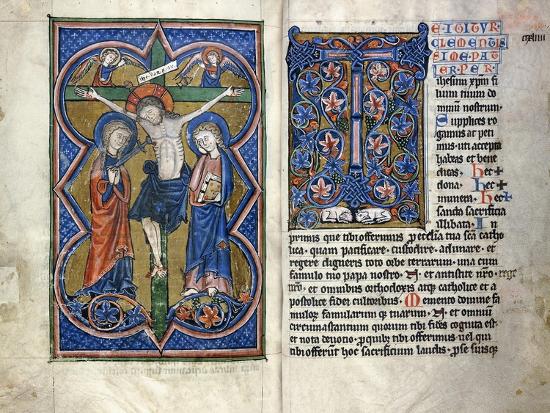 T
E IGITUR
CLEMENTIS
SIME PAT
ER PER
ihesum xpm fi
lium tuum do
minū nostrum
Supplices ro
gamus ac peti
mus. uti accepta
habeas et bene
dicas. hec +
dona. hec +
munera. hec +
sancta sacrificia
illibata. In
primis que tibi offerimus p ecclesia tua scā catho
lica. quam pacificare. custodire. adunare. et
regere digneris toto orbe terrarum. una cum
famulo tuo papa nostro .N. et antistite nrō. rege
.N. et omnibus orthodoxis atq; catholice et a
postolice fidei cultoribus. Memento domine fa
mulor famularumque tuarum .N. et omniū
circumstantium quorum tibi fides cognita est
et nota devotio. p quibus tibi offerimus vel qui
tibi offerunt hoc sacrificium laudis. p se suisque